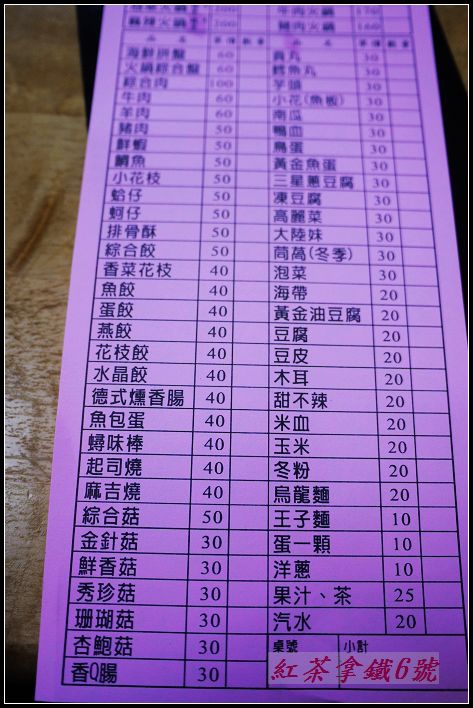 200 牛肉火鍋 170
麻辣火鍋 200 豬肉火鍋 160
品名 單價 數量 品名 單價 數量
海鮮拼盤 60 貢丸 30
火鍋綜合盤 60 鱈魚丸 30
綜合肉 100 芋頭 30
牛肉 60 小花(魚板) 30
羊肉 60 南瓜 30
豬肉 50 鴨血 30
鮮蝦 50 鳥蛋 30
鯛魚 50 黃金魚蛋 30
小花枝 50 三星蔥豆腐 30
蛤仔 50 凍豆腐 30
蚵仔 50 高麗菜 30
排骨酥 50 大陸妹 30
綜合餃 50 茼萵(冬季) 30
香菜花枝 40 泡菜 30
魚餃 40 海帶 20
蛋餃 40 黃金油豆腐 20
燕餃 40 豆腐 20
花枝餃 40 豆皮 20
水晶餃 40 木耳 20
德式燻香腸 40 甜不辣 20
魚包蛋 40 米血 20
蟳味棒 40 玉米 20
起司燒 40 冬粉 20
麻吉燒 40 烏龍麵 20
綜合菇 50 王子麵 10
金針菇 30 蛋一顆 10
鮮香菇 30 洋蔥 10
秀珍菇 30 果汁、茶 25
珊瑚菇 30 汽水 20
杏鮑菇 30 桌號 小計
香Q腸 30
紅茶拿鐵6號